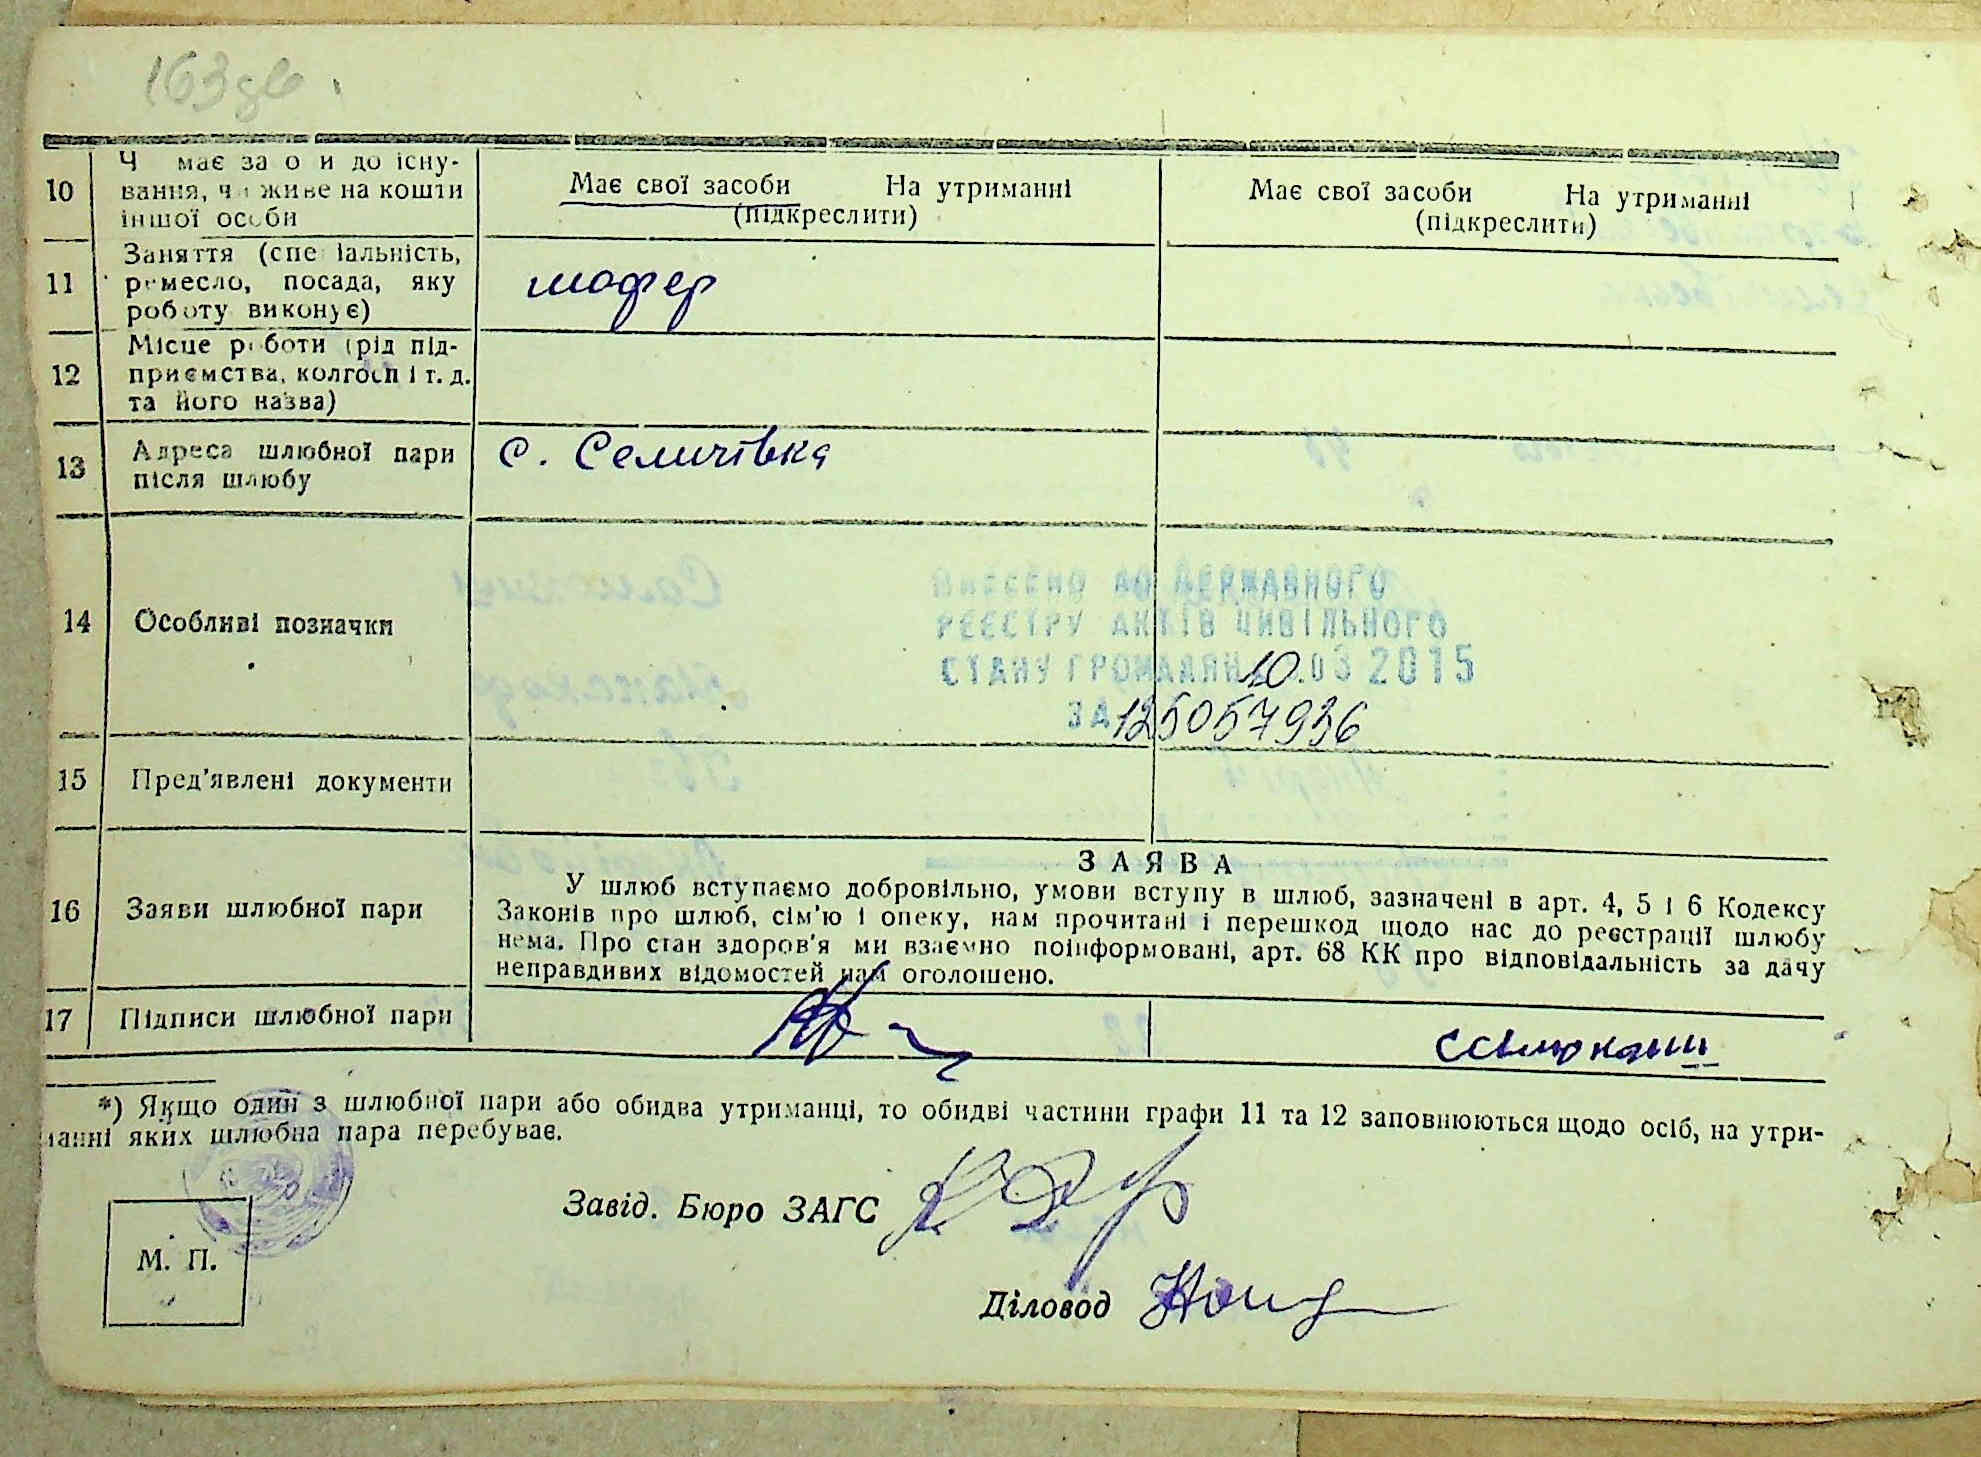 163зв.
10
Ч має за о и до існу-
вання, чи живе на кошти
іншої особи
Має свої засоби На утриманні
(підкреслити)
Має свої засоби На утриманні
(підкреслити)
11
Заняття (спе іальність,
ремесло, посада, яку
роботу виконує)
шофер
12
Місце роботи (рід під-
приємства, колгосп і т. д.
та його назва)
13
Адреса шлюбної пари
після шлюбу
с. Селичівка
14
Особливі позначки
Внесено до Державного
реєстру актів цивільного
стану громадян 10.03 2015
за 125057936
15
Пред'явлені документи
16
Заяви шлюбної пари
ЗАЯВА
У шлюб вступаємо добровільно, умови вступу в шлюб, зазначені в арт. 4, 5 і 6 Кодексу
Законів про шлюб, сім'ю і опеку, нам прочитані і перешкод щодо нас до реєстрації шлюбу
нема. Про стан здоров'я ми взаємно поінформовані, арт. 68 КК про відповідальність за дачу
неправдивих відомостей нам оголошено.
17
Підписи шлюбної пари
*) Якщо один з шлюбної пари або обидва утриманці, то обидві частини графи 11 та 12 заповнюються щодо осіб, на утри-
манні яких шлюбна пара перебуває.
Завід. Бюро ЗАГС
М. П.
Діловод